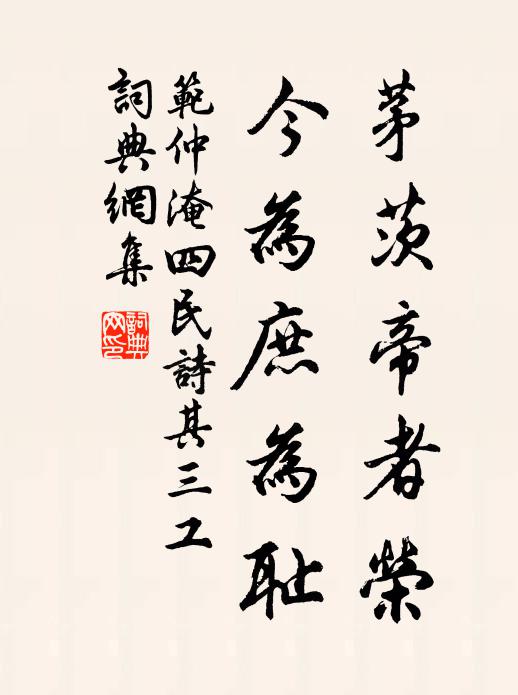 茅茨帝者榮
今為庶為恥
範仲淹四民詩其三工
詞典網集
詞典網印